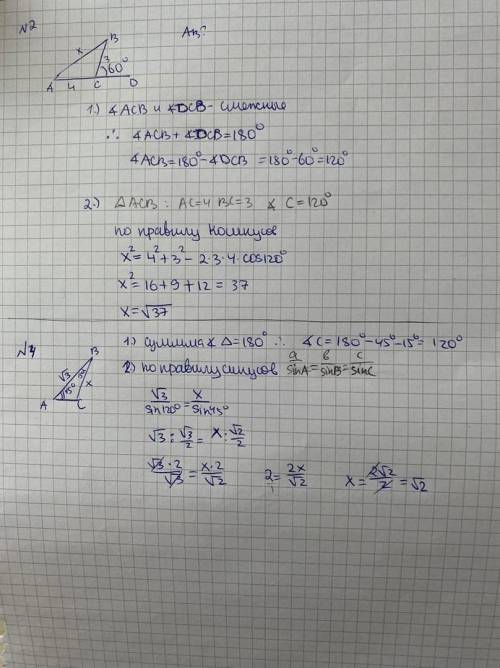 №2 AB?
B
x 3 60°
A 4 C D
1.) ∡ACB и ∡DCB - смежные
∴ ∡ACB + ∡DCB = 180°
∡ACB = 180° - ∡DCB = 180° - 60° = 120°
2.) △ACB : AC=4 BC=3 ∡ C = 120°
по правилу косинусов
x² = 4² + 3² - 2·3·4·cos120°
x² = 16 + 9 + 12 = 37
x = √37
1) сумма ∡ △ = 180° ∴ ∡C = 180° - 45° - 15° = 120°
B
√3 15° x
45°
A C
2) по правилу синусов a/sinA = b/sinB = c/sinC
√3/sin120° = x/sin45°
√3 : √3/2 = x : √2/2
√3·2/√3 = x·2/√2 2 = 2x/√2 x = 2√2/2 = √2